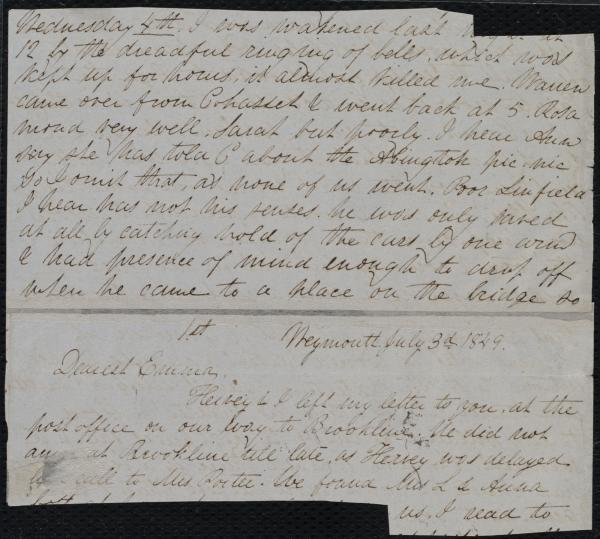 Wednesday 4th. I was wakened last night at
12 by the dreadful ringing of bells, which was
kept up for hours, it almost killed me. Warren
came over from Cohasset & went back at 5. Rosa
mond very well. Sarah but poorly. I hear Ann
says she has told C about the Abington pic nic
so I omit that, as none of us went. Poor Linfield
I hear has not his senses. he was only saved
at all by catching hold of the cars by one arm
& had presence of mind enough to drop off
when he came to a place on the bridge so
1st
Weymouth July 3d 1849.
Dearest Emma.
Hervey & I left my letter to you at the
post office on our way to Brookline. We did not
at Brookline till late, as Hervey was delayed
call to Mrs. Porter. We found Mrs L & Anna
us. I read to